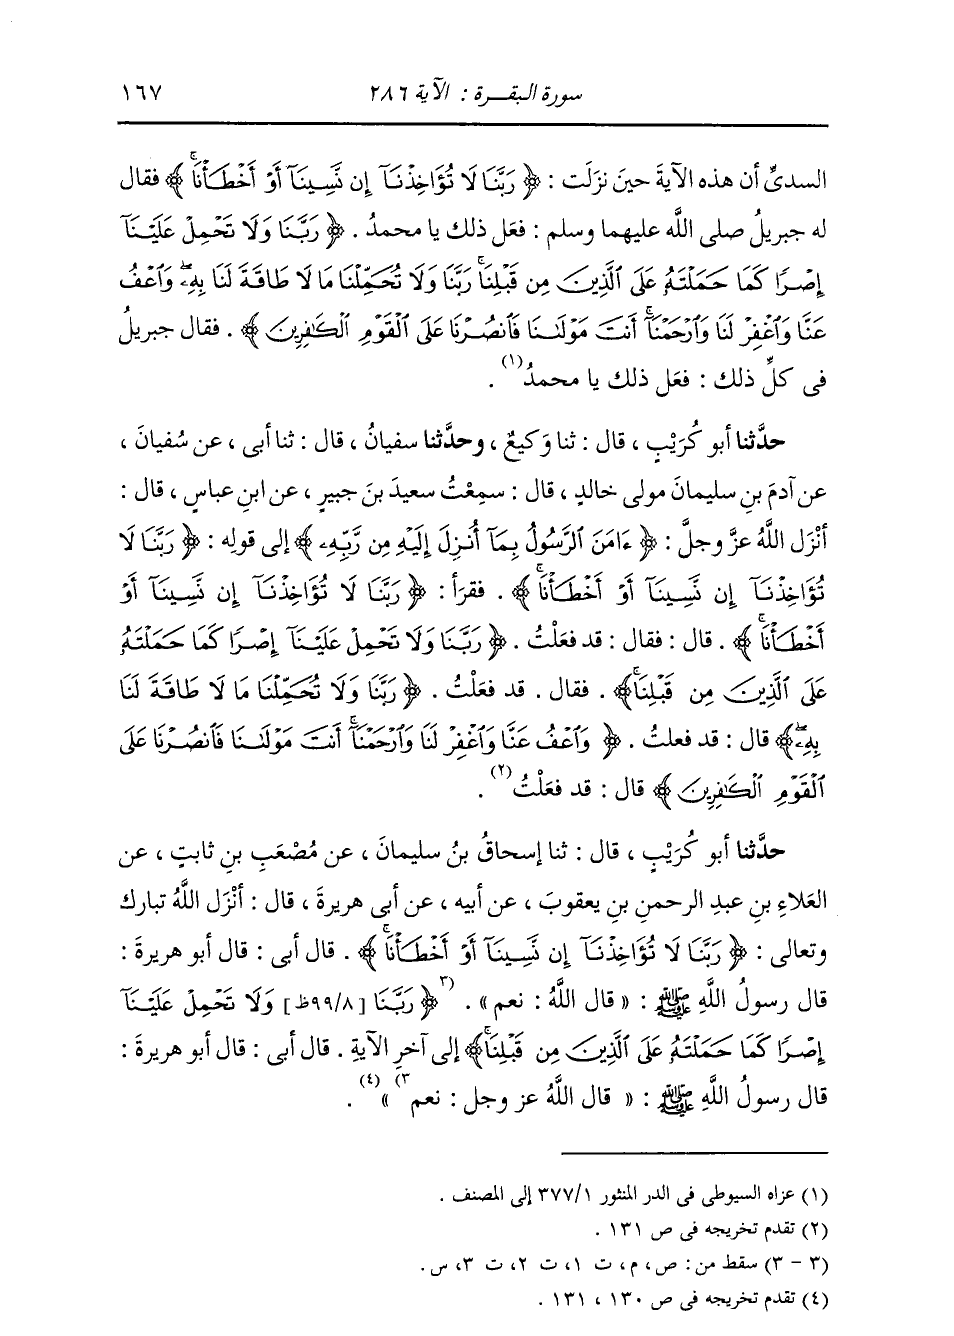 سورة البقـرة : الآية ٢٨٦
١٦٧
السدىِّ أن هذه الآيةَ حينَ نزلَت : ﴿ رَبَّنَا لَا تُؤَاخِذْنَآ إِن نَّسِينَآ أَوْ أَخْطَأْنَاۚ ﴾ فقال
له جبريلُ صلى اللَّه عليهما وسلم : فعَل ذلك يا محمدُ . ﴿ رَبَّنَا وَلَا تَحْمِلْ عَلَيْنَآ
إِصْرًا كَمَا حَمَلْتَهُۥ عَلَى ٱلَّذِينَ مِن قَبْلِنَاۚ رَبَّنَا وَلَا تُحَمِّلْنَا مَا لَا طَاقَةَ لَنَا بِهِۦۖ وَٱعْفُ
عَنَّا وَٱغْفِرْ لَنَا وَٱرْحَمْنَآۚ أَنتَ مَوْلَىٰنَا فَٱنصُرْنَا عَلَى ٱلْقَوْمِ ٱلْكَٰفِرِينَ ﴾ . فقال جبريلُ
فى كلِّ ذلك : فعَل ذلك يا محمدُ(١) .
حدَّثنا أبو كُرَيْبٍ ، قال : ثنا وَكيعٌ ، وحدَّثنا سفيانُ ، قال : ثنا أبى ، عن سُفيانَ ،
عن آدمَ بنِ سليمانَ مولى خالدٍ ، قال : سمِعْتُ سعيدَ بنَ جبيرٍ ، عن ابنِ عباسٍ ، قال :
أنْزَل اللَّهُ عزَّ وجلَّ : ﴿ ءَامَنَ ٱلرَّسُولُ بِمَآ أُنزِلَ إِلَيْهِ مِن رَّبِّهِۦ ﴾ إلى قولِه : ﴿ رَبَّنَا لَا
تُؤَاخِذْنَآ إِن نَّسِينَآ أَوْ أَخْطَأْنَاۚ ﴾ . فقرَأ : ﴿ رَبَّنَا لَا تُؤَاخِذْنَآ إِن نَّسِينَآ أَوْ
أَخْطَأْنَاۚ ﴾ . قال : فقال : قد فعَلْتُ . ﴿ رَبَّنَا وَلَا تَحْمِلْ عَلَيْنَآ إِصْرًا كَمَا حَمَلْتَهُۥ
عَلَى ٱلَّذِينَ مِن قَبْلِنَاۚ﴾ . فقال . قد فعَلْتُ . ﴿ رَبَّنَا وَلَا تُحَمِّلْنَا مَا لَا طَاقَةَ لَنَا
بِهِۦۖ﴾ قال : قد فعلتُ . ﴿ وَٱعْفُ عَنَّا وَٱغْفِرْ لَنَا وَٱرْحَمْنَآۚ أَنتَ مَوْلَىٰنَا فَٱنصُرْنَا عَلَى
ٱلْقَوْمِ ٱلْكَٰفِرِينَ ﴾ قال : قد فعَلْتُ(٢) .
حدَّثنا أبو كُرَيْبٍ ، قال : ثنا إسحاقُ بنُ سليمانَ ، عن مُصْعَبِ بنِ ثابتٍ ، عن
العَلاءِ بنِ عبدِ الرحمنِ بنِ يعقوبَ ، عن أبيه ، عن أبى هريرةَ ، قال : أنْزَل اللَّهُ تبارك
وتعالى : ﴿ رَبَّنَا لَا تُؤَاخِذْنَآ إِن نَّسِينَآ أَوْ أَخْطَأْنَاۚ ﴾ . قال أبى : قال أبو هريرةَ :
قال رسولُ اللَّهِ ﷺ : « قال اللَّهُ : نعم » . (٣﴿ رَبَّنَا [٩٩/٨ظ] وَلَا تَحْمِلْ عَلَيْنَآ
إِصْرًا كَمَا حَمَلْتَهُۥ عَلَى ٱلَّذِينَ مِن قَبْلِنَاۚ﴾ إلى آخرِ الآيةِ . قال أبى : قال أبو هريرةَ :
قال رسولُ اللَّهِ ﷺ : « قال اللَّهُ عز وجل : نعم٣) »(٤) .
(١) عزاه السيوطى فى الدر المنثور ٣٧٧/١ إلى المصنف .
(٢) تقدم تخريجه فى ص ١٣١ .
(٣ - ٣) سقط من : ص ، م ، ت ١، ت ٢، ت ٣، س .
(٤) تقدم تخريجه فى ص ١٣٠ ، ١٣١ .